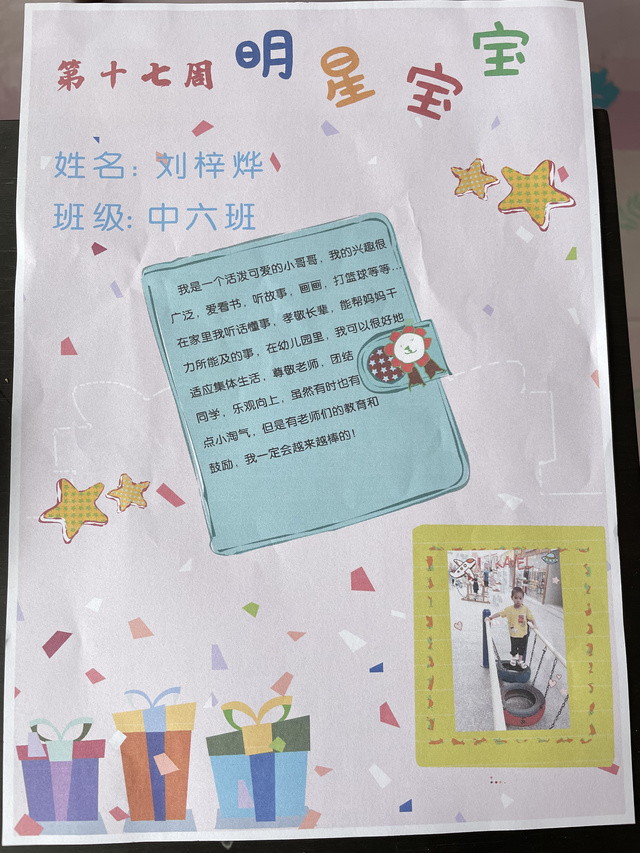 第十七周 明星宝宝
姓名: 刘梓烨
班级: 中六班
我是一个活泼可爱的小哥哥，我的兴趣很
广泛，爱看书，听故事，画画，打篮球等等...
在家里我听话懂事，孝敬长辈，能帮妈妈干
力所能及的事，在幼儿园里，我可以很好地
适应集体生活，尊敬老师，团结
同学，乐观向上，虽然有时也有
点小淘气，但是有老师们的教育和
鼓励，我一定会越来越棒的！